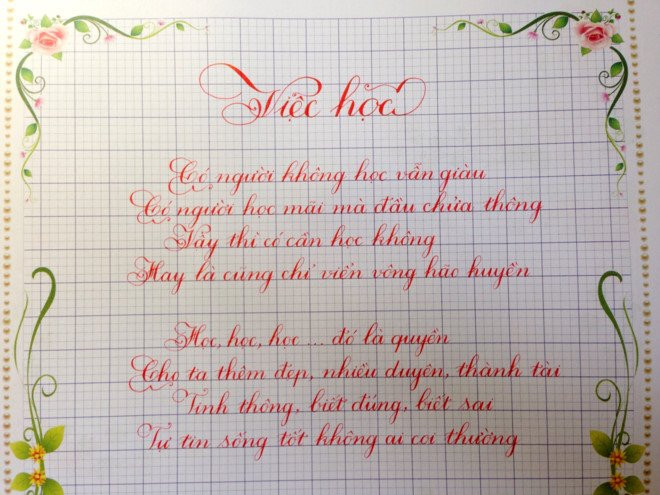 Việc học
Có người không học vẫn giàu
Có người học mãi mà đầu chưa thông
Vậy thì có cần học không
Hay là cũng chỉ viển vông hão huyền
Học, học, học ... đó là quyền
Cho ta thêm đẹp, nhiều duyên, thành tài
Tinh thông, biết đúng, biết sai
Tự tin sống tốt không ai coi thường